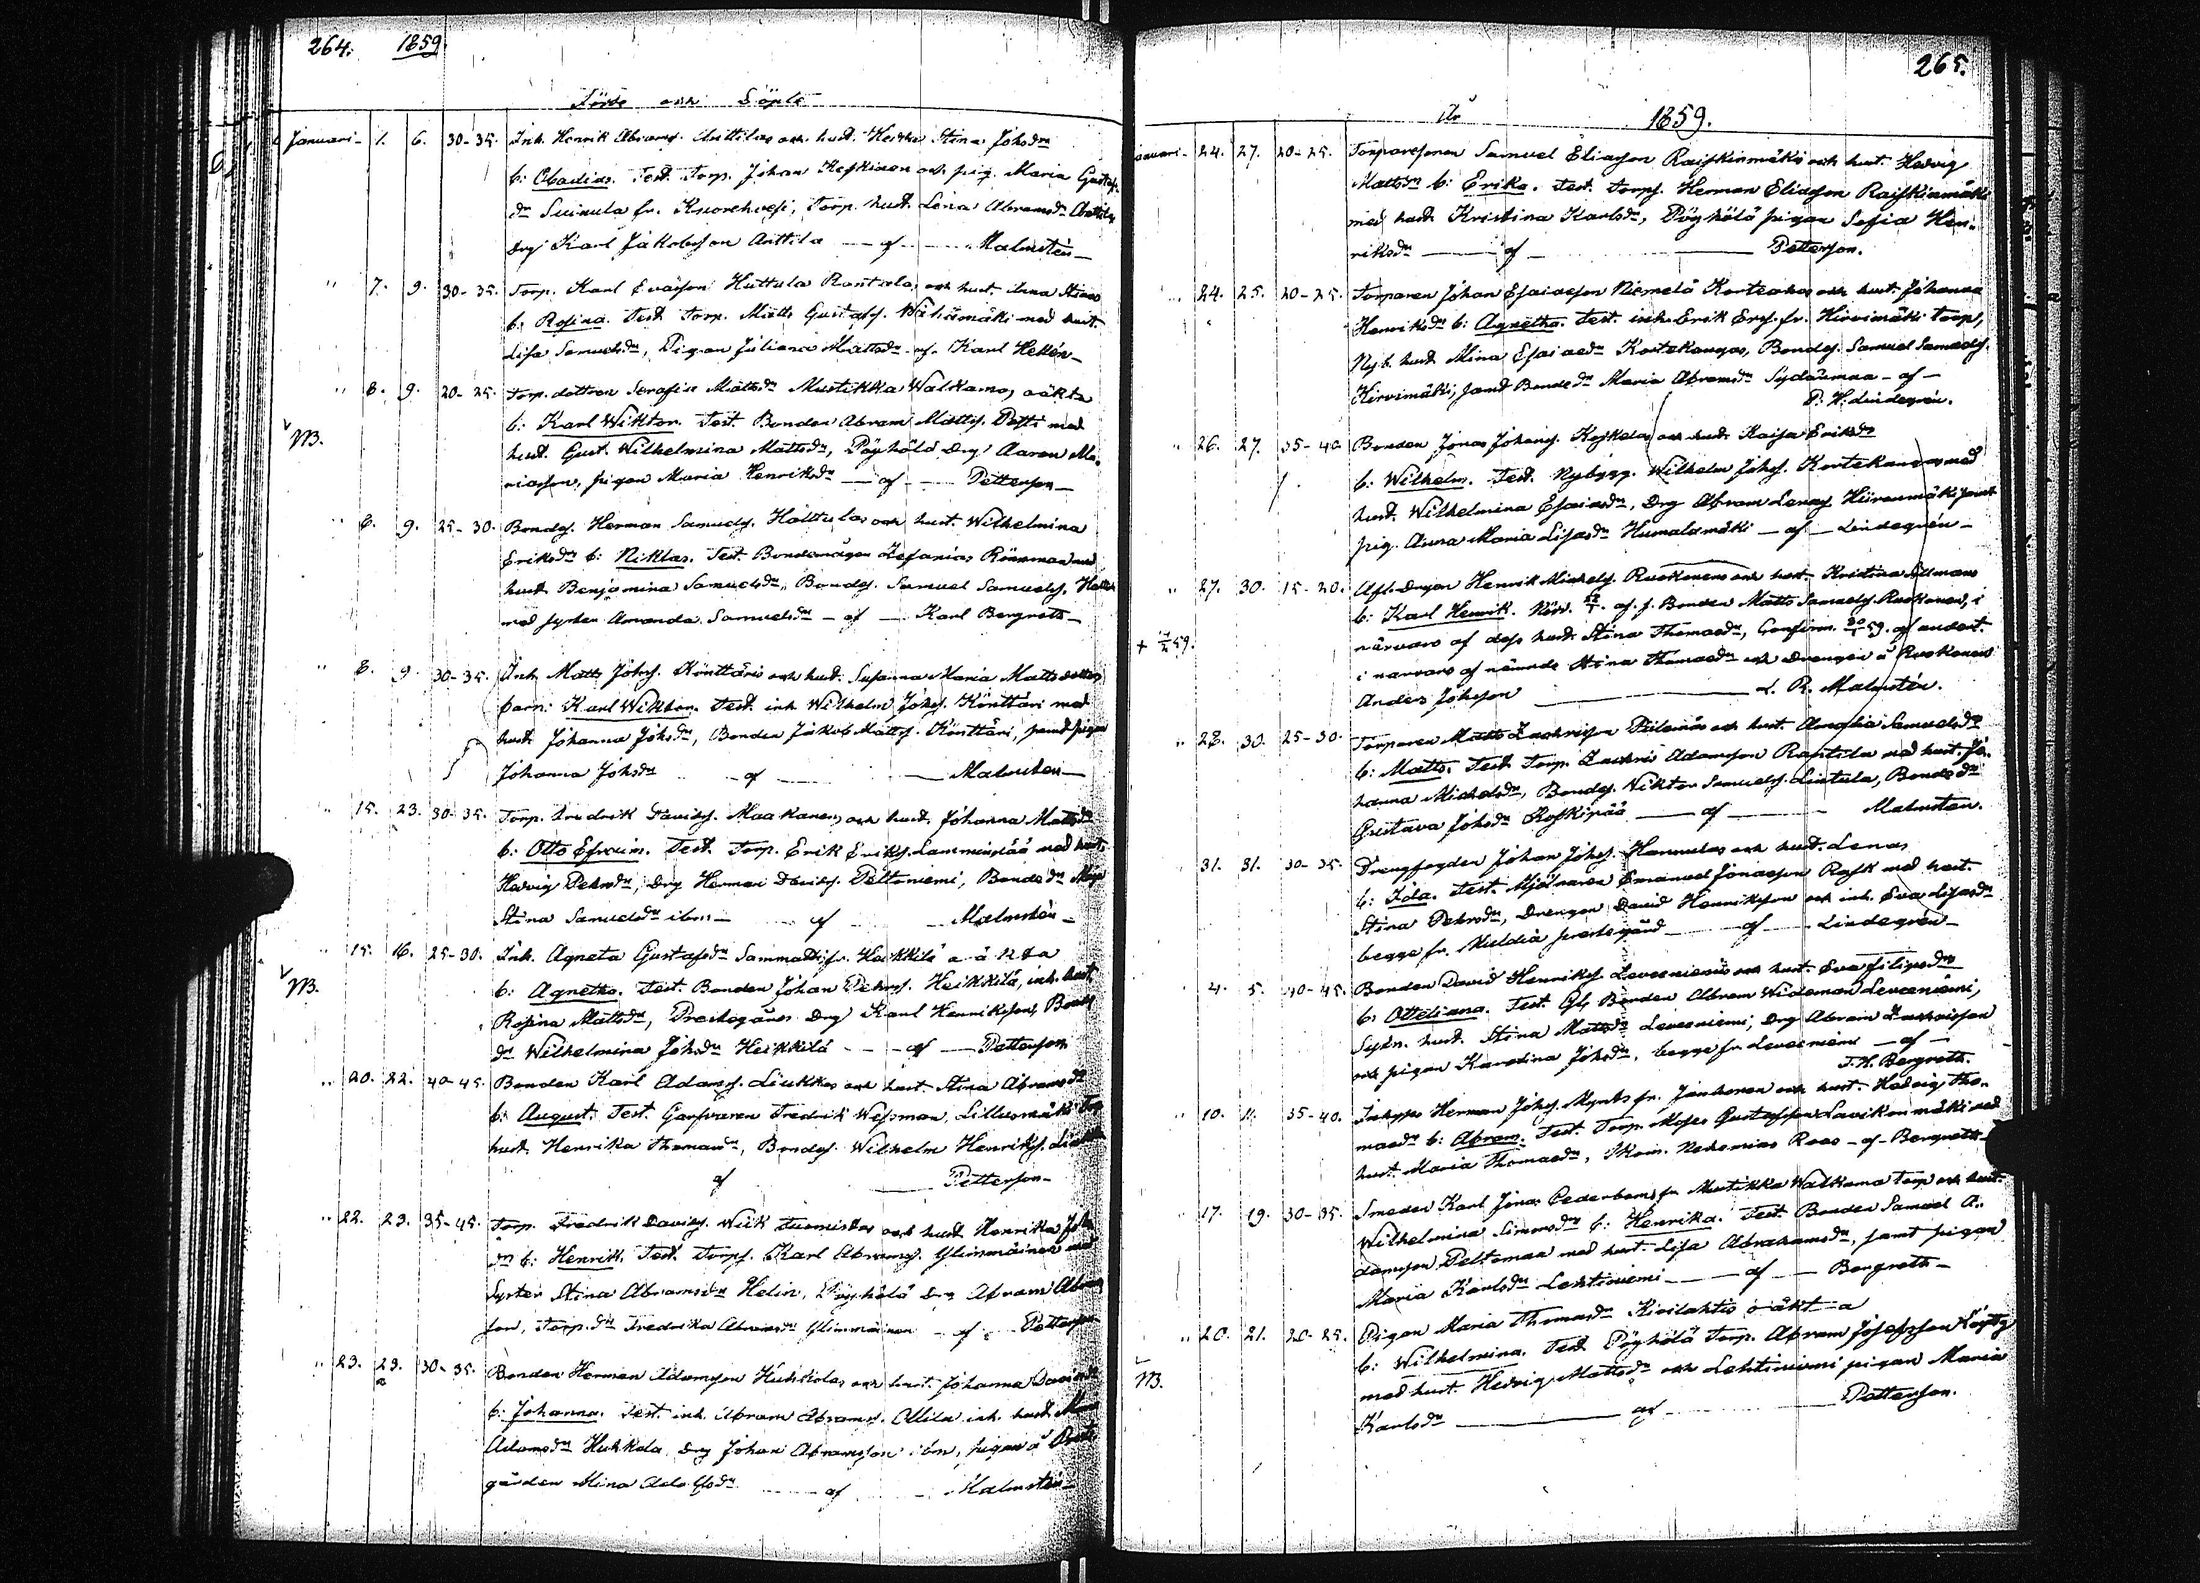 264. 1859
Födde och Döpte
Januari - 1. 6. 30-35. Inh. Henrik Abramss. Anttila och hust. Stina Johsdr
b: Obadias. Test. Torp. Johan Koskinen och pig. Maria Gustafs
dr Suinula fr. Kuorehvesi, Torp. hust. Lena Abramsdr Anttila
drg Karl Jakobsson Anttila — af — Malmstén —
" 7. 9. 30-35. Torp. Karl Huttula Rantala och hust. Anna Stina
b: Rosina. Test. Torp. Matts Gustafss. Wähämäki med hust.
Lisa Samuelsdr, Pigan Juliana Mattsdr af Karl Hellén —
" 8. 9. 20-25. Torp. dottren Serafia Mattsdr Mustikka Walkama, oäkta
NB. b: Karl Wiktor. Test. Bonden Abram Mattss. Petti med
hust. Gust. Wilhelmina Mattsdr, Pöyhölä Drg Aaron Ma-
riasson, pigan Maria Henriksdr — af — Petterson —
" 8. 9. 25-30. Bondes. Herman Samuels. Hattula och hust. Wilhelmina
Eriksdr b: Niklas. Test. Bondemågen Zefanias Rönnman med
hust. Benjamina Samuelsdr, Bondes. Samuel Samuelss. Hattu
med syster Amanda Samuelsdr — af — Karl Bergroth —
" 8. 9. 30-35. Inh. Matts Johss. Könttäri och hust. Susanna Maria Mattsdotter
barn: Karl Wiktor. Test. inh. Wilhelm Johss. Könttäri med
hust. Johanna Johsdr, Bonden Jakob Mattss. Könttäri, samt pigan
Johanna Johsdr — af — Malmstén —
" 15. 23. 30-35. Torp. Fredrik Davidss. Maakanen och hust. Johanna Mattsdr
b: Otto Efraim. Test. Torp. Erik Erikss. Lamminpää med hust.
Hedvig Pehrsdr, Drg Herman Davidss. Peltoniemi, Bondedr Maja
Stina Samuelsdr ibm — af — Malmstén —
" 15. 16. 25-30. Inh. Agneta Gustafsdr Sammatti fr. Heikkilä
NB. b: Agnetha. Test. Bonden Johan Pehrss. Heikkilä, inh. hust.
Rosina Mattsdr, Prestegårds Drg Karl Henriksson, Bonde
dr Wilhelmina Johsdr Heikkilä — af — Petterson
" 20. 22. 40-45. Bonden Karl Adamss. Liukko och hust. Stina Abramsdr
b: August. Test. Garfvaren Fredrik Wessman, Lillusmäki Torp
hust. Henrika Thomasdr, Bondes. Wilhelm Henrikss.
af — Petterson —
" 22. 23. 35-45. Torp. Fredrik Davidss. Wiik Tuomisto och hust. Henrika Johs
dr b: Henrik. Test. Torps. Karl Abramss. Ylimmäinen med
Syster Stina Abramsdr Helin, Pöyhölä Drg Abram Abrams
son, Torp. dr Fredrika Abramsdr Ylimmäinen — af — Petterson
" 23. 23. 30-35. Bonden Herman Adamsson Hukkola och hust. Johanna Davidsdr
b: Johanna. Test. inh. Abram Abramss. Ollila inh. hust.
Adamsdr Hukkola, Drg Johan Abramsson ibm, pigan å Prest
gården Mina Adolfsdr — af — Malmstén —
265.
År 1859.
Januari - 24. 27. 20-25. Torparesonen Samuel Eliasson Raiskinmäki och hust. Hedvig
Mattsdr b: Erika. Test. Torps. Herman Eliasson Raiskinmäki
med hust. Kristina Karlsdr, Pöyhölä pigan Sofia Hen-
riksdr — af — Petterson.
" 24. 25. 20-25. Torparen Johan Esaiasson Niemelä Kortekangas och hust. Johanna
Henriksdr b: Agnetha. Test. inh. Erik Ers. fr. Hirvimäki torp,
Nyb. hust. Mina Esaiaedr Kortekangas, Bondes. Samuel Samuelss.
Hirvimäki, samt Bondedr Maria Abramsdr Sydänmaa — af —
P. H. Lindegrén.
" 26. 27. 35-40 Bonden Jonas Johanss. Koskela och hust. Kaisa Eriksdr
b: Wilhelm. Test. Nybygg. Wilhelm Johss. Kortekangas med
hust. Wilhelmina Esaiasdr, Drg Abram Hiirenmäki samt
pig. Anna Maria Lisasdr Humalamäki — af — Lindegrén —
" 27. 30. 15-20. Afl. Drgen Henrik Michelss. Ruokonen och hust. Kristina
b: Karl Henrik. Nöd. af f. Bonden Matts Samuelss. Ruokonen, i
närvaro af dess hust. Stina Thomasdr, Confirm. 30/1 59. af undert.
i närvaro af nämnde Stina Thomasdr och Drengen å Ruokonen
Anders Johsson — L. R. Malmstén.
" 28. 30. 25-30. Torparen Matts Zachrisson och hust. Amalia Samuelsdr
b: Matts. Test. Torp. Zachris Adamsson Rantila med hust. Jo-
hanna Michelsdr, Bondes. Viktor Samuelss. Lintula, Bondedr
Gustava Johsdr Koskipää — af — Malmstén.
31. 31. 30-35. Drengfogden Johan Johss. Hannula och hust. Lena
b: Ida. Test. Mjölnaren Emanuel Jonasson Rask med hust.
Stina Pehrsdr, Drengen David Henriksson och inh. Eva Lisasdr
begge fr. Keuldia prestegård — af — Lindegrén —
4. 5. 40-45. Bonden David Henrikss. Leveeniemi och hust. Eva Filipsdr
b: Ottiliana. Test. Gl. Bonden Abram Wideman Leveeniemi,
Sytn. hust. Stina Mattsdr Leveeniemi, Drg Abram Zachrisson
och pigan Karolina Johsdr, begge fr. Leveeniemi — af —
F. H. Bergroth.
" 10. 11. 35-40. Inhyses Herman Johss. fr. Janhonen och hust. Hedvig Tho-
masdr b: Abram. Test. Torp. Moses Gustafsson Lavikonmäki med
hust. Maria Thomasdr, Nehemias Roos — af — Bergroth —
" 17. 19. 30-35. Smeden Karl Jonas Cederbom, fr. Mustikka Walkama torp och hust.
Wilhelmina Simonsdr b: Henrika. Test. Bonden Samuel A-
damsson Peltomaa med hust. Lisa Abrahamsdr, samt pigan
Maria Karlsdr Lehtiniemi — af — Bergroth —
" 20. 21. 20-25. Pigan Maria Thomasdr Kivilahti oäkta
NB. b: Wilhelmina. Test. Pöyhölä Torp. Abram Josefsson
med hust. Hedvig Mattsdr och Lehtiniemi pigan Maria
Karlsdr — af — Petterson.